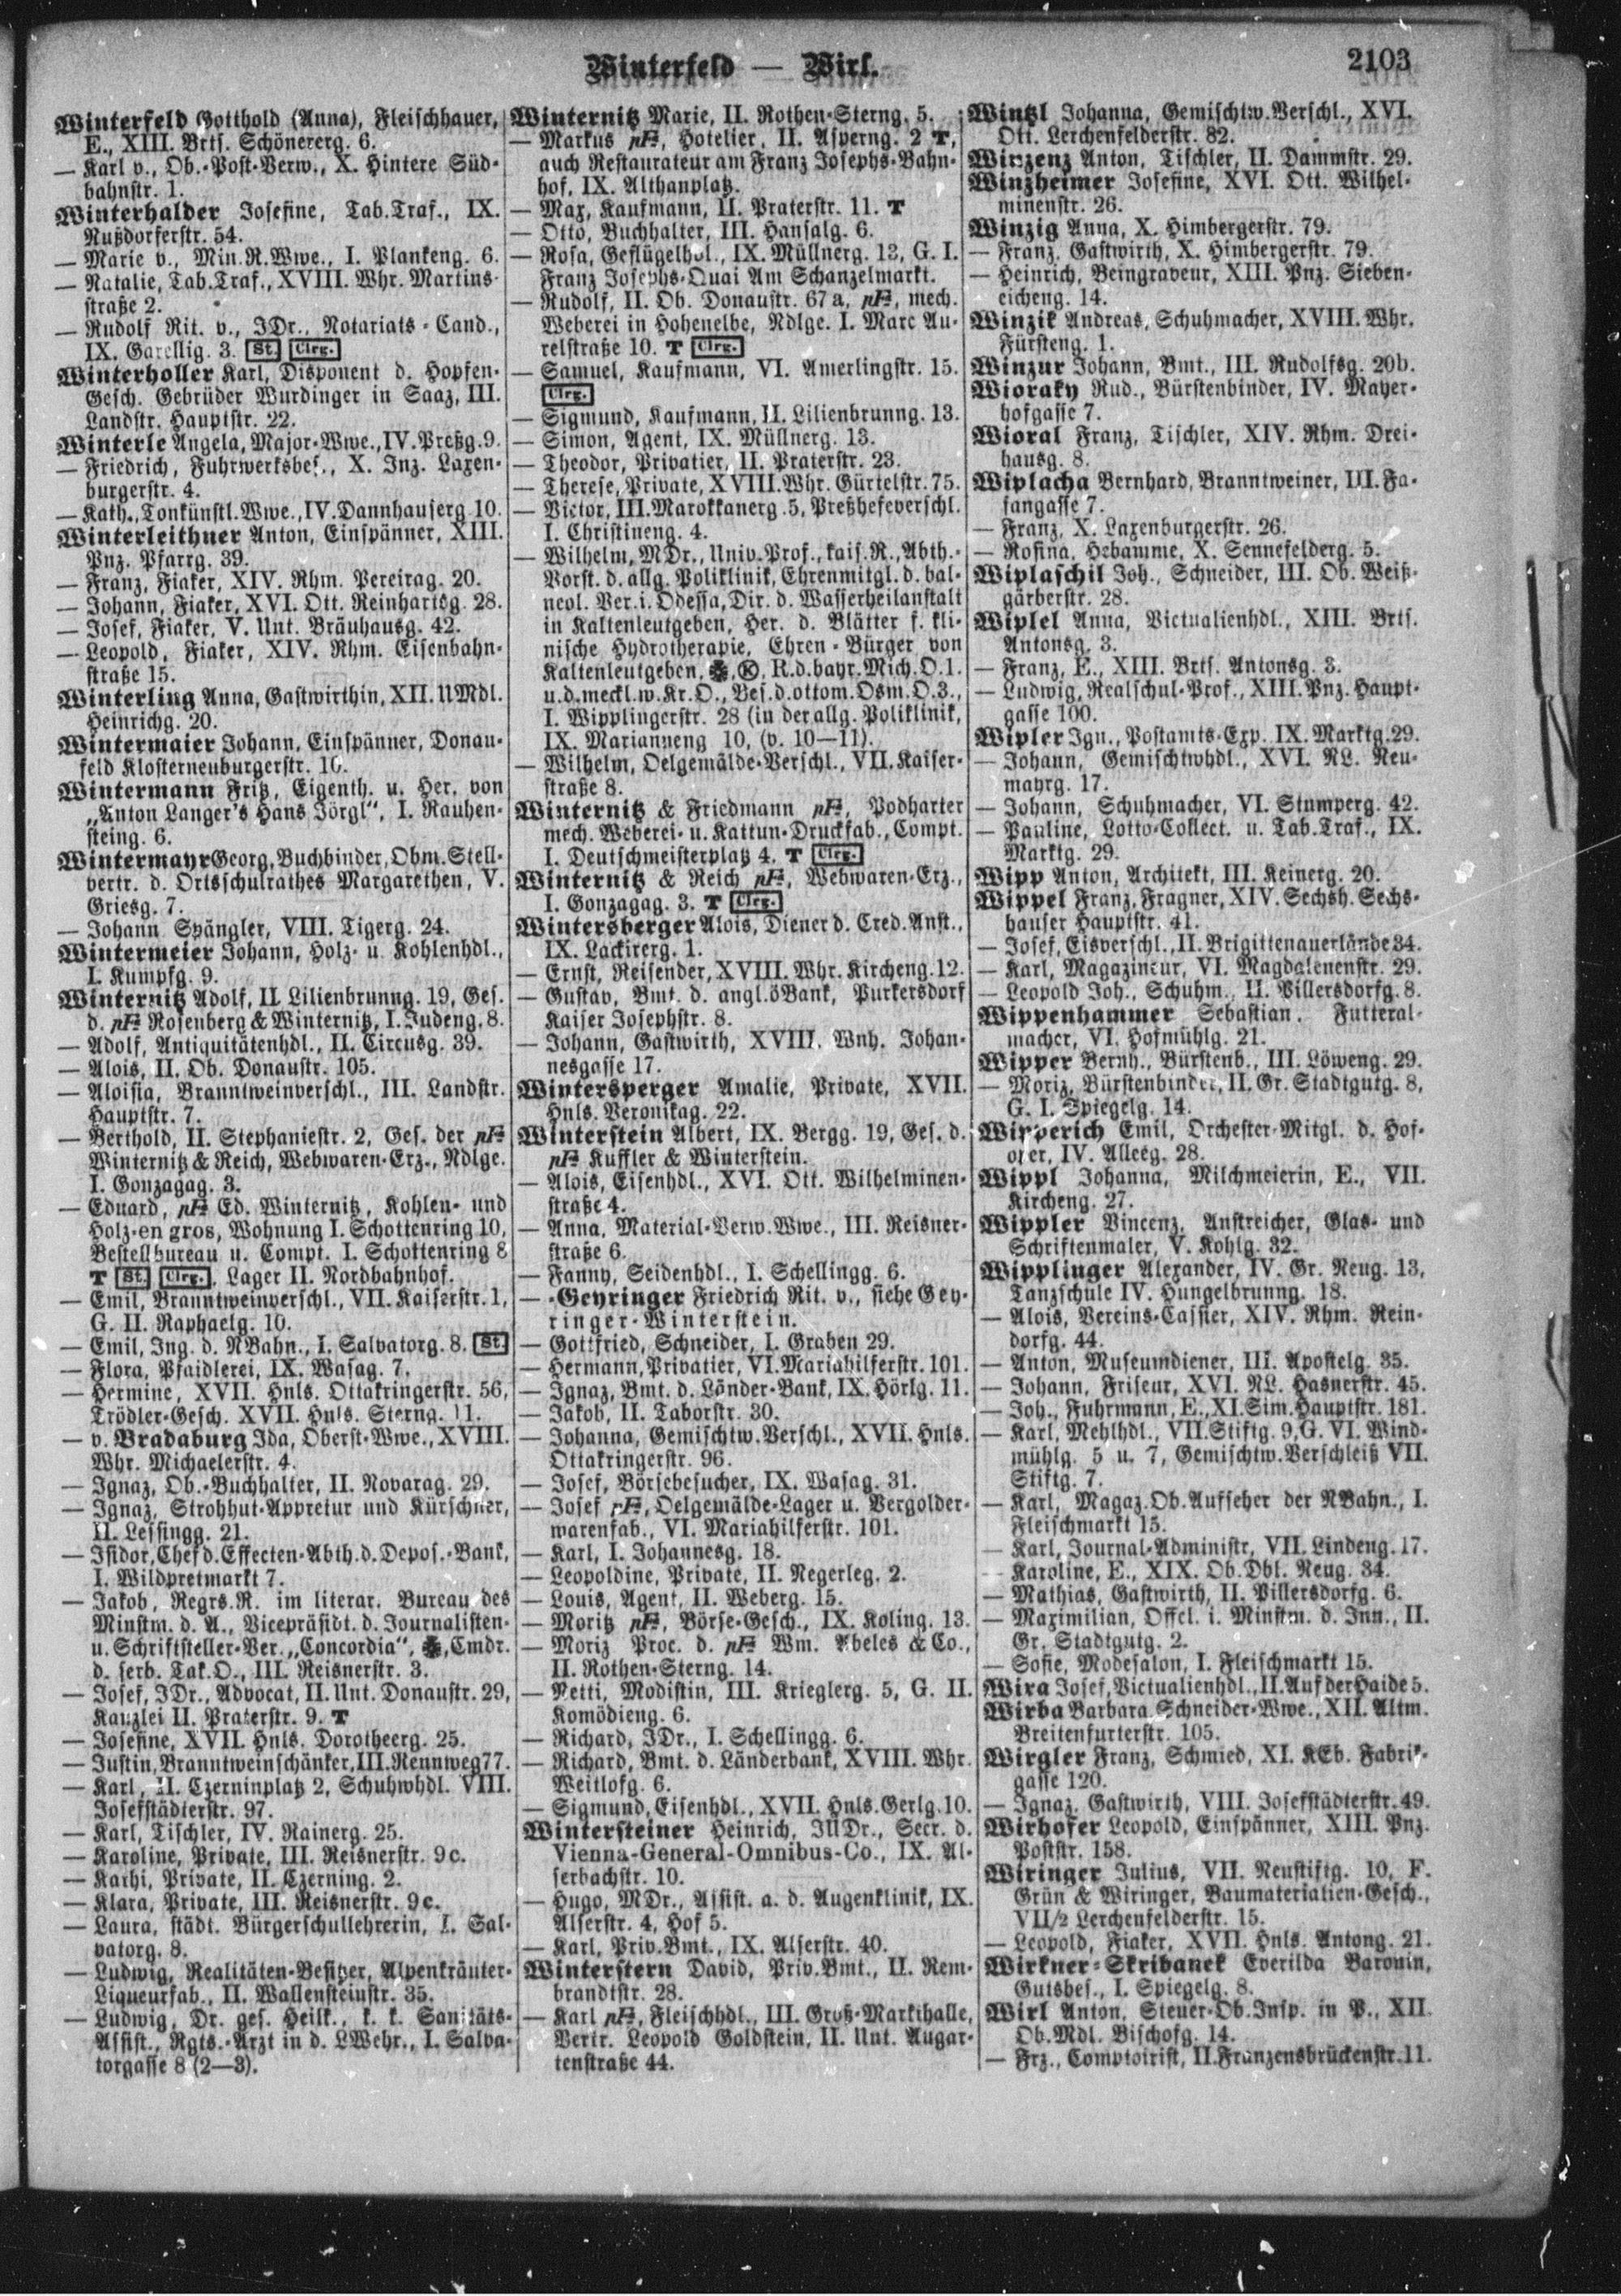 Winterfeld — Wirl.
2103
Winterfeld Gotthold (Anna), Fleischhauer,
E., XIII. Brts. Schönererg. 6.
— Karl v., Ob.-Post-Verw., X. Hintere Süd-
bahnstr. 1.
Winterhalder Josefine, Tab.Traf., IX.
Nußdorferstr. 54.
— Marie v., Min.R.Wwe., I. Plankeng. 6.
— Natalie, Tab.Traf., XVIII. Whr. Martins-
straße 2.
— Rudolf Rit. v., JDr., Notariats-Cand.,
IX. Garellig. 3. St. Clrg.
Winterholler Karl, Disponent d. Hopfen-
Gesch. Gebrüder Wurdinger in Saaz, III.
Landstr. Hauptstr. 22.
Winterle Angela, Major-Wwe., IV. Preßg. 9.
— Friedrich, Fuhrwerksbes., X. Inz. Laxen-
burgerstr. 4.
— Kath., Tonkünstl.Wwe., IV. Dannhauserg 10.
Winterleithner Anton, Einspänner, XIII.
Pnz. Pfarrg. 39.
— Franz, Fiaker, XIV. Rhm. Pereirag. 20.
— Johann, Fiaker, XVI. Ott. Reinhartsg. 28.
— Josef, Fiaker, V. Unt. Bräuhausg. 42.
— Leopold, Fiaker, XIV. Rhm. Eisenbahn-
straße 15.
Winterling Anna, Gastwirthin, XII. UMdl.
Heinrichg. 20.
Wintermaier Johann, Einspänner, Donau-
feld Klosterneuburgerstr. 10.
Wintermann Fritz, Eigenth. u. Her. von
„Anton Langer's Hans Jörgl“, I. Rauhen-
steing. 6.
Wintermayr Georg, Buchbinder, Obm.Stell-
vertr. d. Ortsschulrathes Margarethen, V.
Griesg. 7.
— Johann Spängler, VIII. Tigerg. 24.
Wintermeier Johann, Holz- u. Kohlenhdl.,
I. Kumpfg. 9.
Winternitz Adolf, II Lilienbrunng. 19, Ges.
d. pF Rosenberg & Winternitz, I. Judeng. 8.
— Adolf, Antiquitätenhdl., II. Circusg. 39.
— Alois, II. Ob. Donaustr. 105.
— Aloisia, Branntweinverschl., III. Landstr.
Hauptstr. 7.
— Berthold, II. Stephaniestr. 2, Ges. der pF
Winternitz & Reich, Webwaren-Erz., Ndlge.
I. Gonzagag. 3.
— Eduard, pF Ed. Winternitz, Kohlen- und
Holz-en gros, Wohnung I. Schottenring 10,
Bestellbureau u. Compt. I. Schottenring 8
T St. Clrg., Lager II. Nordbahnhof.
— Emil, Branntweinverschl., VII. Kaiserstr. 1,
G. II. Raphaelg. 10.
— Emil, Ing. d. NBahn., I. Salvatorg. 8. St.
— Flora, Pfaidlerei, IX. Wasag. 7.
— Hermine, XVII. Hnls. Ottakringerstr. 56,
Trödler-Gesch. XVII. Hnls. Sterng. 11.
— v. Bradaburg Ida, Oberst-Wwe., XVIII.
Whr. Michaelerstr. 4.
— Ignaz, Ob.-Buchhalter, II. Novarag. 29.
— Ignaz, Strohhut-Appretur und Kürschner,
II. Lessingg. 21.
— Isidor, Chef d. Effecten-Abth. d. Depos.-Bank,
I. Wildpretmarkt 7.
— Jakob, Regrs.R. im literar. Bureau des
Minstm. d. A., Vicepräsidt. d. Journalisten-
u. Schriftsteller-Ver. „Concordia“, Cmdr.
d. serb. Tak.O., III. Reisnerstr. 3.
— Josef, JDr., Advocat, II. Unt. Donaustr. 29,
Kanzlei II. Praterstr. 9. T
— Josefine, XVII. Hnls. Dorotheerg. 25.
— Justin, Branntweinschänker, III. Rennweg 77.
— Karl, II. Czerninplatz 2, Schuhwhdl. VIII.
Josefstädterstr. 97.
— Karl, Tischler, IV. Rainerg. 25.
— Karoline, Private, III. Reisnerstr. 9c.
— Kathi, Private, II. Czerning. 2.
— Klara, Private, III. Reisnerstr. 9c.
— Laura, städt. Bürgerschullehrerin, I. Sal-
vatorg. 8.
— Ludwig, Realitäten-Besitzer, Alpenkräuter-
Liqueurfab., II. Wallensteinstr. 35.
— Ludwig, Dr. ges. Heilk., k. k. Sanitäts-
Assist., Rgts.-Arzt in d. LWehr., I. Salva-
torgasse 8 (2—3).
Winternitz Marie, II. Rothen-Sterng. 5.
— Markus pF, Hotelier, II. Asperng. 2 T,
auch Restaurateur am Franz Josephs-Bahn-
hof, IX. Althanplatz.
— Max, Kaufmann, II. Praterstr. 11. T
— Otto, Buchhalter, III. Hansalg. 6.
— Rosa, Geflügelhdl., IX. Müllnerg. 13, G. I.
Franz Josephs-Quai Am Schanzelmarkt.
— Rudolf, II. Ob. Donaustr. 67a, pF, mech.
Weberei in Hohenelbe, Ndlge. I. Marc Au-
relstraße 10. T Clrg.
— Samuel, Kaufmann, VI. Amerlingstr. 15.
Clrg.
— Sigmund, Kaufmann, II. Lilienbrunng. 13.
— Simon, Agent, IX. Müllnerg. 13.
— Theodor, Privatier, II. Praterstr. 23.
— Therese, Private, XVIII. Whr. Gürtelstr. 75.
— Victor, III. Marokkanerg. 5, Preßhefeverschl.
I. Christineng. 4.
— Wilhelm, MDr., Univ.Prof., kais. R., Abth.-
Vorst. d. allg. Poliklinik, Ehrenmitgl. d. bal-
neol. Ver. i. Odessa, Dir. d. Wasserheilanstalt
in Kaltenleutgeben, Her. d. Blätter f. kli-
nische Hydrotherapie, Ehren-Bürger von
Kaltenleutgeben, K, R.d.bayr.Mich.O.1.
u.d.meckl.w.Kr.O., Bes.d.ottom.Osm.O.3.,
I. Wipplingerstr. 28 (in der allg. Poliklinik,
IX. Marianneng 10, (v. 10—11).
— Wilhelm, Oelgemälde-Verschl., VII. Kaiser-
straße 8.
Winternitz & Friedmann pF, Podharter
mech. Weberei- u. Kattun-Druckfab., Compt.
I. Deutschmeisterplatz 4. T Clrg.
Winternitz & Reich pF, Webwaren-Erz.,
I. Gonzagag. 3. T Clrg.
Wintersberger Alois, Diener d. Cred. Anst.,
IX. Lackirerg. 1.
— Ernst, Reisender, XVIII. Whr. Kircheng. 12.
— Gustav, Bmt. d. angl.öBank, Purkersdorf
Kaiser Josephstr. 8.
— Johann, Gastwirth, XVIII. Wnh. Johan-
nesgasse 17.
Wintersperger Amalie, Private, XVII.
Hnls. Veronikag. 22.
Winterstein Albert, IX. Bergg. 19, Ges. d.
pF Kuffler & Winterstein.
— Alois, Eisenhdl., XVI. Ott. Wilhelminen-
straße 4.
— Anna, Material-Verw.Wwe., III. Reisner-
straße 6.
— Fanny, Seidenhdl., I. Schellingg. 6.
— -Geyringer Friedrich Rit. v., siehe Gey-
ringer-Winterstein.
— Gottfried, Schneider, I. Graben 29.
— Hermann, Privatier, VI. Mariahilferstr. 101.
— Ignaz, Bmt. d. Länder-Bank, IX. Hörlg. 11.
— Jakob, II. Taborstr. 30.
— Johanna, Gemischtw.Verschl., XVII. Hnls.
Ottakringerstr. 96.
— Josef, Börsebesucher, IX. Wasag. 31.
— Josef pF, Oelgemälde-Lager u. Vergolder-
warenfab., VI. Mariahilferstr. 101.
— Karl, I. Johannesg. 18.
— Leopoldine, Private, II. Negerleg. 2.
— Louis, Agent, II. Weberg. 15.
— Moritz pF, Börse-Gesch., IX. Koling. 13.
— Moriz Proc. d. pF Wm. Abeles & Co.,
II. Rothen-Sterng. 14.
— Netti, Modistin, III. Krieglerg. 5, G. II.
Komödieng. 6.
— Richard, JDr., I. Schellingg. 6.
— Richard, Bmt. d. Länderbank, XVIII. Whr.
Weitlofg. 6.
— Sigmund, Eisenhdl., XVII. Hnls. Gerlg. 10.
Wintersteiner Heinrich, JUDr., Secr. d.
Vienna-General-Omnibus-Co., IX. Al-
serbachstr. 10.
— Hugo, MDr., Assist. a. d. Augenklinik, IX.
Alserstr. 4, Hof 5.
— Karl, Priv.Bmt., IX. Alserstr. 40.
Winterstern David, Priv.Bmt., II. Rem-
brandtstr. 28.
— Karl pF, Fleischhdl., III. Groß-Markthalle,
Vertr. Leopold Goldstein, II. Unt. Augar-
tenstraße 44.
Wintzl Johanna, Gemischtw.Verschl., XVI.
Ott. Lerchenfelderstr. 82.
Winzenz Anton, Tischler, II. Dammstr. 29.
Winzheimer Josefine, XVI. Ott. Wilhel-
minenstr. 26.
Winzig Anna, X. Himbergerstr. 79.
— Franz, Gastwirth, X. Himbergerstr. 79.
— Heinrich, Beingraveur, XIII. Pnz. Sieben-
eicheng. 14.
Winzik Andreas, Schuhmacher, XVIII. Whr.
Fürsteng. 1.
Winzur Johann, Bmt., III. Rudolfsg. 20b.
Wioraky Rud., Bürstenbinder, IV. Mayer-
hofgasse 7.
Wioral Franz, Tischler, XIV. Rhm. Drei-
hausg. 8.
Wiplacha Bernhard, Branntweiner, III. Fa-
sangasse 7.
— Franz, X. Laxenburgerstr. 26.
— Rosina, Hebamme, X. Sennefelderg. 5.
Wiplaschil Joh., Schneider, III. Ob. Weiß-
gärberstr. 28.
Wiplel Anna, Victualienhdl., XIII. Brts.
Antonsg. 3.
— Franz, E., XIII. Brts. Antonsg. 3.
— Ludwig, Realschul-Prof., XIII. Pnz. Haupt-
gasse 100.
Wipler Ign., Postamts-Exp. IX. Marktg. 29.
— Johann, Gemischtwhdl., XVI. NL. Neu-
mayrg. 17.
— Johann, Schuhmacher, VI. Stumperg. 42.
— Pauline, Lotto-Collect. u. Tab.Traf., IX.
Marktg. 29.
Wipp Anton, Architekt, III. Keinerg. 20.
Wippel Franz, Fragner, XIV. Sechsh. Sechs-
hauser Hauptstr. 41.
— Josef, Eisverschl., II. Brigittenauerlände 34.
— Karl, Magazineur, VI. Magdalenenstr. 29.
— Leopold Joh., Schuhm., II. Villersdorfg. 8.
Wippenhammer Sebastian. Futteral-
macher, VI. Hofmühlg. 21.
Wipper Bernh., Bürstenb., III. Löweng. 29.
— Moriz, Bürstenbinder, II. Gr. Stadtgutg. 8,
G. I. Spiegelg. 14.
Wipperich Emil, Orchester-Mitgl. d. Hof-
oper, IV. Alleeg. 28.
Wippl Johanna, Milchmeierin, E., VII.
Kircheng. 27.
Wippler Vincenz, Anstreicher, Glas- und
Schriftenmaler, V. Kohlg. 32.
Wipplinger Alexander, IV. Gr. Neug. 13,
Tanzschule IV. Hungelbrunng. 18.
— Alois, Vereins-Cassier, XIV. Rhm. Rein-
dorfg. 44.
— Anton, Museumdiener, III. Apostelg. 35.
— Johann, Friseur, XVI. NL. Hasnerstr. 45.
— Joh., Fuhrmann, E., XI. Sim. Hauptstr. 181.
— Karl, Mehlhdl., VII. Stiftg. 9, G. VI. Wind-
mühlg. 5 u. 7, Gemischtw.Verschleiß VII.
Stiftg. 7.
— Karl, Magaz.Ob.Aufseher der NBahn., I.
Fleischmarkt 15.
— Karl, Journal-Administr, VII. Lindeng. 17.
— Karoline, E., XIX. Ob.Dbl. Neug. 34.
— Mathias, Gastwirth, II. Villersdorfg. 6.
— Maximilian, Offcl. i. Minstm. d. Inn., II.
Gr. Stadtgutg. 2.
— Sofie, Modesalon, I. Fleischmarkt 15.
Wira Josef, Victualienhdl., II. Auf der Haide 5.
Wirba Barbara, Schneider-Wwe., XII. Altm.
Breitenfurterstr. 105.
Wirgler Franz, Schmied, XI. KEb. Fabrik-
gasse 120.
— Ignaz, Gastwirth, VIII. Josefstädterstr. 49.
Wirhofer Leopold, Einspänner, XIII. Pnz.
Poststr. 158.
Wiringer Julius, VII. Neustiftg. 10, F.
Grün & Wiringer, Baumaterialien-Gesch.,
VII/2 Lerchenfelderstr. 15.
— Leopold, Fiaker, XVII. Hnls. Antong. 21.
Wirkner-Skribanek Everilda Baronin,
Gutsbes., I. Spiegelg. 8.
Wirl Anton, Steuer-Ob.Insp. in P., XII.
Ob.Mdl. Bischofg. 14.
— Frz., Comptoirist, II. Franzensbrückenstr. 11.